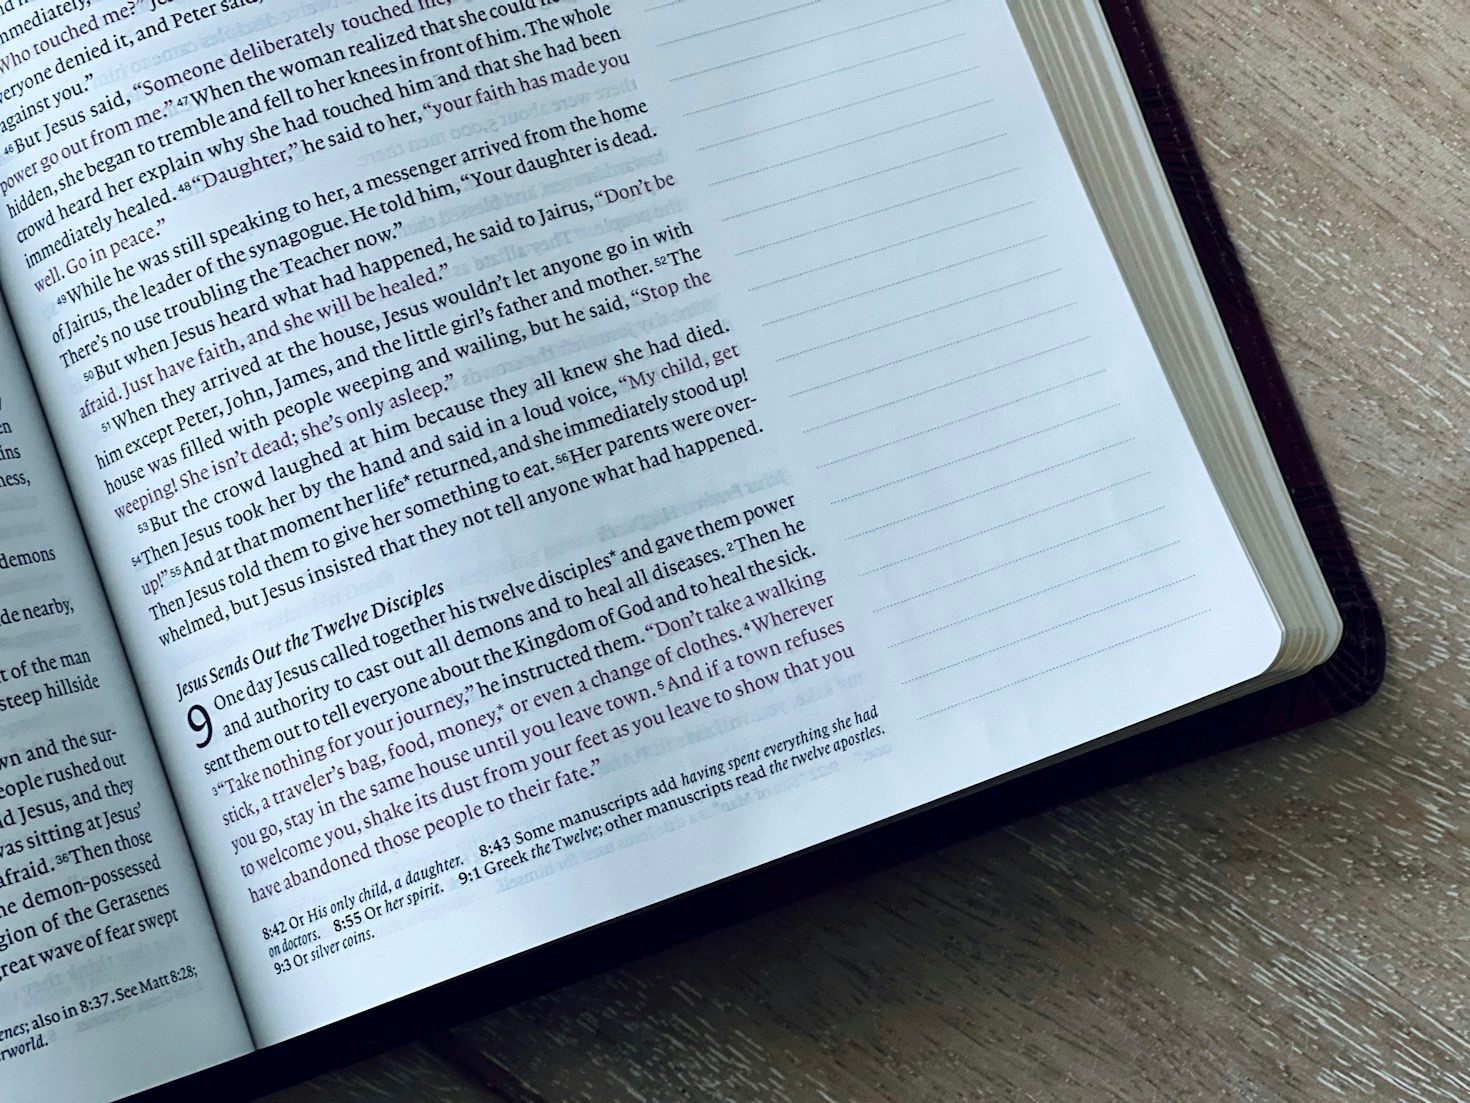 demons
de nearby,
t of the man
steep hillside
wn and the sur-
eople rushed out
d Jesus, and they
was sitting at Jesus'
afraid. 36 Then those
he demon-possessed
gion of the Gerasenes
reat wave of fear swept
enes; also in 8:37. See Matt 8:28;
rworld.
mmediately,
Who touched me?"
everyone denied it, and Peter said,
against you."
46 But Jesus said, "Someone deliberately touched me,
power go out from me." 47 When the woman realized that she could
hidden, she began to tremble and fell to her knees in front of him. The whole
crowd heard her explain why she had touched him and that she had been
immediately healed. 48 "Daughter," he said to her, "your faith has made you
well. Go in peace."
49 While he was still speaking to her, a messenger arrived from the home
of Jairus, the leader of the synagogue. He told him, "Your daughter is dead.
There's no use troubling the Teacher now."
50 But when Jesus heard what had happened, he said to Jairus, "Don't be
afraid. Just have faith, and she will be healed."
51 When they arrived at the house, Jesus wouldn't let anyone go in with
him except Peter, John, James, and the little girl's father and mother. 52 The
house was filled with people weeping and wailing, but he said, "Stop the
weeping! She isn't dead; she's only asleep."
53 But the crowd laughed at him because they all knew she had died.
54 Then Jesus took her by the hand and said in a loud voice, "My child, get
up!" 55 And at that moment her life* returned, and she immediately stood up!
Then Jesus told them to give her something to eat. 56 Her parents were over-
whelmed, but Jesus insisted that they not tell anyone what had happened.
Jesus Sends Out the Twelve Disciples
9 One day Jesus called together his twelve disciples* and gave them power
and authority to cast out all demons and to heal all diseases. 2 Then he
sent them out to tell everyone about the Kingdom of God and to heal the sick.
3 "Take nothing for your journey," he instructed them. "Don't take a walking
stick, a traveler's bag, food, money,* or even a change of clothes. 4 Wherever
you go, stay in the same house until you leave town. 5 And if a town refuses
to welcome you, shake its dust from your feet as you leave to show that you
have abandoned those people to their fate."
8:42 Or His only child, a daughter. 8:43 Some manuscripts add having spent everything she had
on doctors. 8:55 Or her spirit. 9:1 Greek the Twelve; other manuscripts read the twelve apostles.
9:3 Or silver coins.